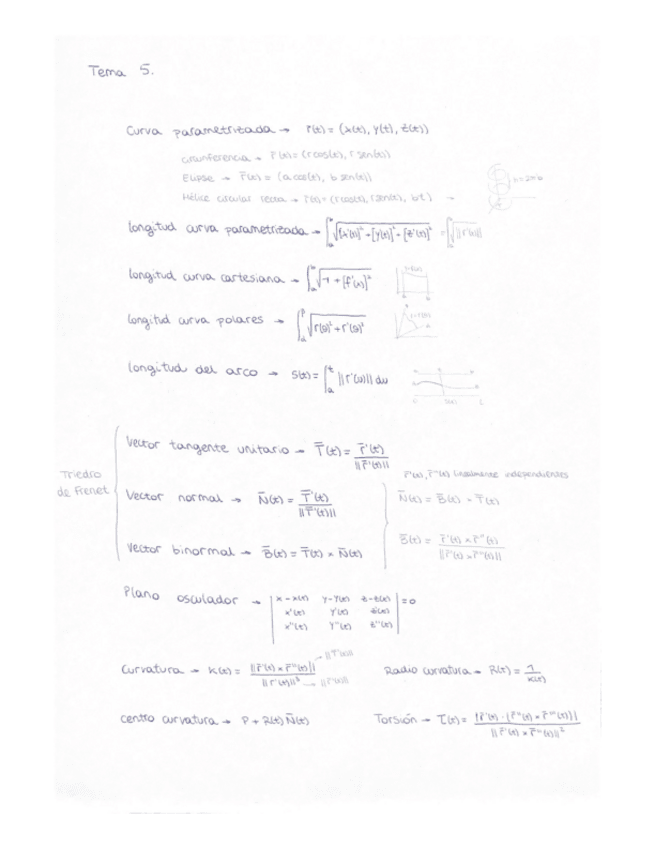 Tema 5.
Curva parametrizada → r̄(t) = (x(t), y(t), z(t))
circunferencia → r̄(t) = (r cos(t), r sen(t))
Elipse → r̄(t) = (a cos(t), b sen(t))
Hélice circular recta → r̄(t) = (r cos(t), r sen(t), bt) → h = 2πb
longitud curva parametrizada → ∫ₐᵇ √([x'(t)]² + [y'(t)]² + [z'(t)]²) = ∫ₐᵇ √||r'(t)||
longitud curva cartesiana → ∫ₐᵇ √(1 + [f'(x)]²)
longitud curva polares → ∫ √(r(θ)² + r'(θ)²)
longitud del arco → s(t) = ∫ₐᵗ ||r'(u)|| du
Triedro de Frenet
Vector tangente unitario → T̄(t) = r̄'(t) / ||r̄'(t)||
Vector normal → N̄(t) = T̄'(t) / ||T̄'(t)||
Vector binormal → B̄(t) = T̄(t) × N̄(t)
r̄'(t), r̄''(t) linealmente independientes
N̄(t) = B̄(t) × T̄(t)
B̄(t) = r̄'(t) × r̄''(t) / ||r̄'(t) × r̄''(t)||
Plano osculador → | x - x(t) y - y(t) z - z(t) | = 0
x'(t) y'(t) z'(t)
x''(t) y''(t) z''(t)
Curvatura → K(t) = ||r̄'(t) × r̄''(t)|| / ||r'(t)||³ → ||T'(t)|| → ||r'(t)||
Radio curvatura → R(t) = 1 / K(t)
centro curvatura → P + R(t) N̄(t)
Torsión → τ(t) = |r̄'(t) · (r̄''(t) × r̄'''(t))| / ||r̄'(t) × r̄''(t)||²